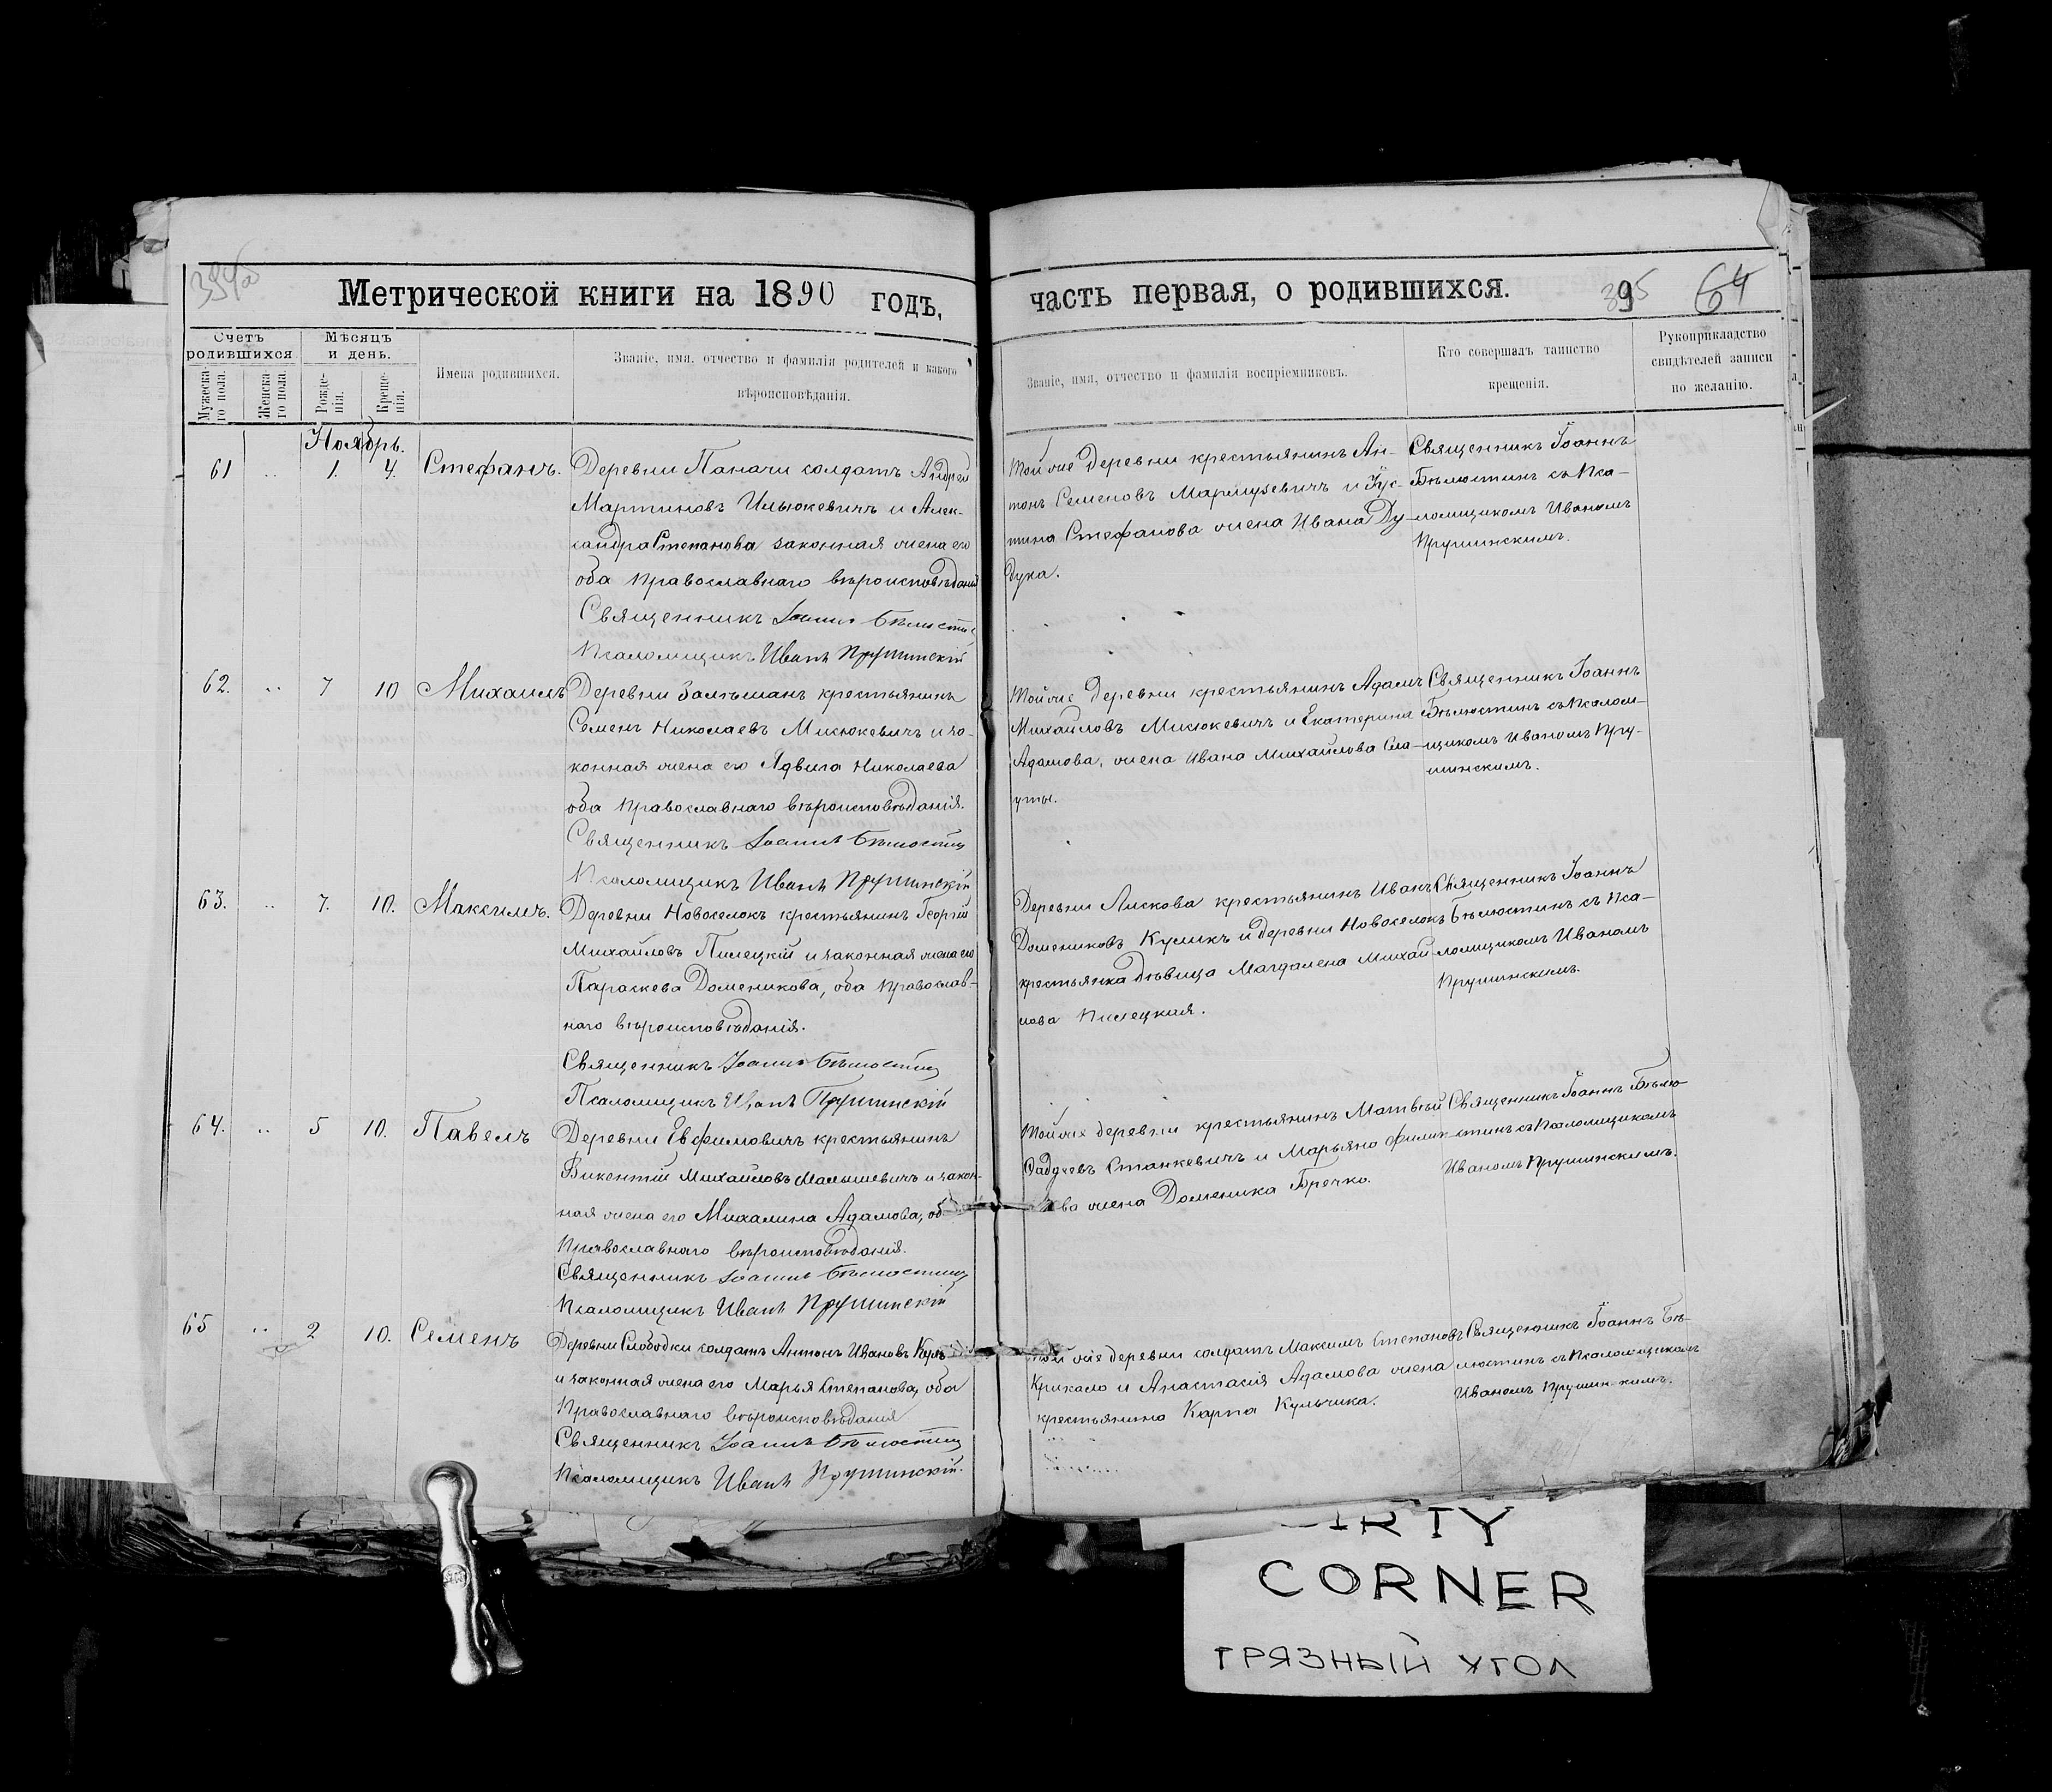 Метрической книги на 1890 годъ,
часть первая, о родившихся.
395
64
Счетъ родившихся
Мѣсяцъ и день.
Мужеска-го пола.
Женска-го пола.
Рожде-нія.
Креще-нія.
Имена родившихся.
Званіе, имя, отчество и фамилія родителей и какого
вѣроисповѣданія.
Званіе, имя, отчество и фамилія воспріемниковъ.
Кто совершалъ таинство
крещенія.
Рукоприкладство
свидѣтелей записи
по желанію.
Ноябрь.
61 .. 1. 4. Стефанъ.
Деревни Паначи солдатъ Андрей
Мартиновъ Ильюкевичъ и Алек-
сандра Степанова законная жена его
оба православнаго вѣроисповѣданія
Священникъ Іоаннъ Бѣлюстин
Псаломщикъ Иванъ Прушинскій
Той же деревни крестьянинъ Ан-
тонъ Семеновъ Мармузевичъ и Іус-
тина Стефанова жена Ивана Ду-
дука.
Священникъ Іоаннъ
Бѣлюстинъ съ Пса-
ломщикомъ Иваномъ
Прушинскимъ.
62. .. 7 10 Михаилъ
Деревни крестьянинъ
Семенъ Николаевъ Мисюкевичъ и за-
конная жена его Ядвига Николаева
оба православнаго вѣроисповѣданія.
Священникъ Іоаннъ Бѣлюстин
Псаломщикъ Иванъ Прушинскій
Той же деревни крестьянинъ Адамъ
Михайловъ Мисюкевичъ и Екатерина
Адамова, жена Ивана Михайлова Сла-
уты.
Священникъ Іоаннъ
Бѣлюстинъ съ Псалом-
щикомъ Иваномъ Пру-
шинскимъ.
63. .. 7. 10. Максимъ.
Деревни Новоселокъ крестьянинъ Георгій
Михайловъ Пилецкій и законная жена его
Параскева Доменикова, оба православ-
наго вѣроисповѣданія.
Священникъ Іоаннъ Бѣлюстин
Псаломщикъ Иванъ Прушинскій
Деревни Лискова крестьянинъ Иванъ
Домениковъ Куликъ и деревни Новоселокъ
крестьянка дѣвица Магдалена Михай-
лова Пилецкая.
Священникъ Іоаннъ
Бѣлюстинъ съ Пса-
ломщикомъ Иваномъ
Прушинскимъ.
64. .. 5 10. Павелъ
Деревни Евфимовичъ крестьянинъ
Викентій Михайловъ Малышевичъ и закон-
ная жена его Михалина Адамова, об
Православнаго вѣроисповѣданія.
Священникъ Іоаннъ Бѣлюстин
Псаломщикъ Иванъ Прушинскій
Той же деревни крестьянинъ Матвѣй
Фаддеевъ Станкевичъ и Марьяна Филип-
ова жена Доменика Бречко.
Священникъ Іоаннъ Бѣлю-
стинъ съ Псаломщикомъ
Иваномъ Прушинскимъ.
65 .. 2 10. Семенъ
Деревни Слободки солдатъ Антонъ Ивановъ
и законная жена его Марья Степанова, оба
Православнаго вѣроисповѣданія
Священникъ Іоаннъ Бѣлюстин
Псаломщикъ Иванъ Прушинскій.
той же деревни солдатъ Максимъ Степановъ
Крикало и Анастасія Адамова жена
крестьянина Карпа Кульчика.
Священникъ Іоаннъ Бѣ-
люстинъ съ Псаломщикомъ
Иваномъ Прушинскимъ.
DIRTY
CORNER
ГРЯЗНЫЙ УГОЛ